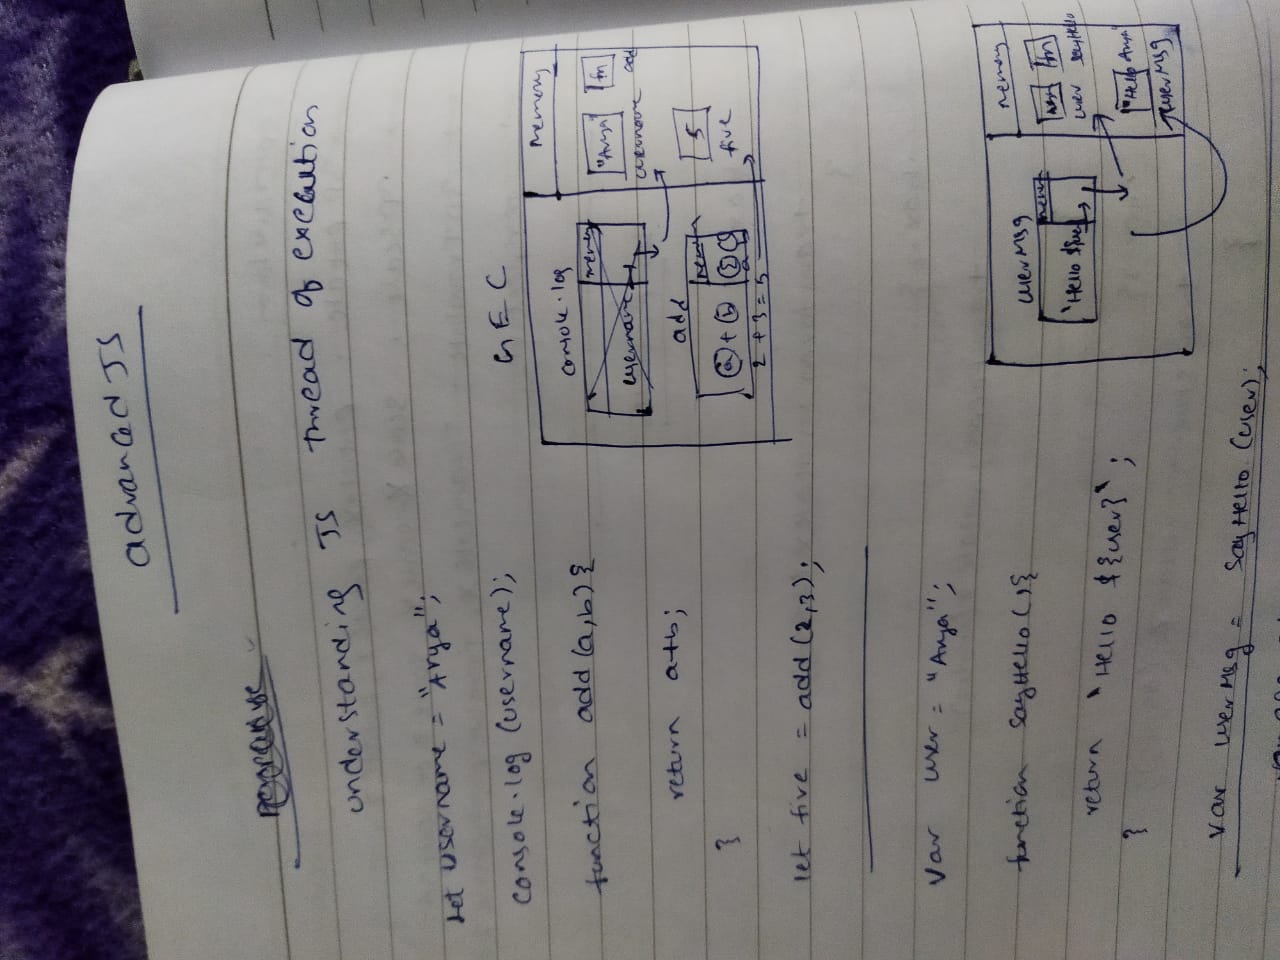 advanced JS
understanding JS thread of execution
let username = "Arya";
console.log (username);
function add (a,b) {
return a+b;
}
let five = add (2,3);
GEC
memory
console.log
memory
username
"Arya"
username
fn
add
add
memory
a + b
2 + 3 = 5
5
five
var user = "Arya";
function sayHello () {
return `Hello ${user}`;
}
var userMsg = sayHello (user);
memory
userMsg
fn
user
sayHello
"Hello Arya"
userMsg